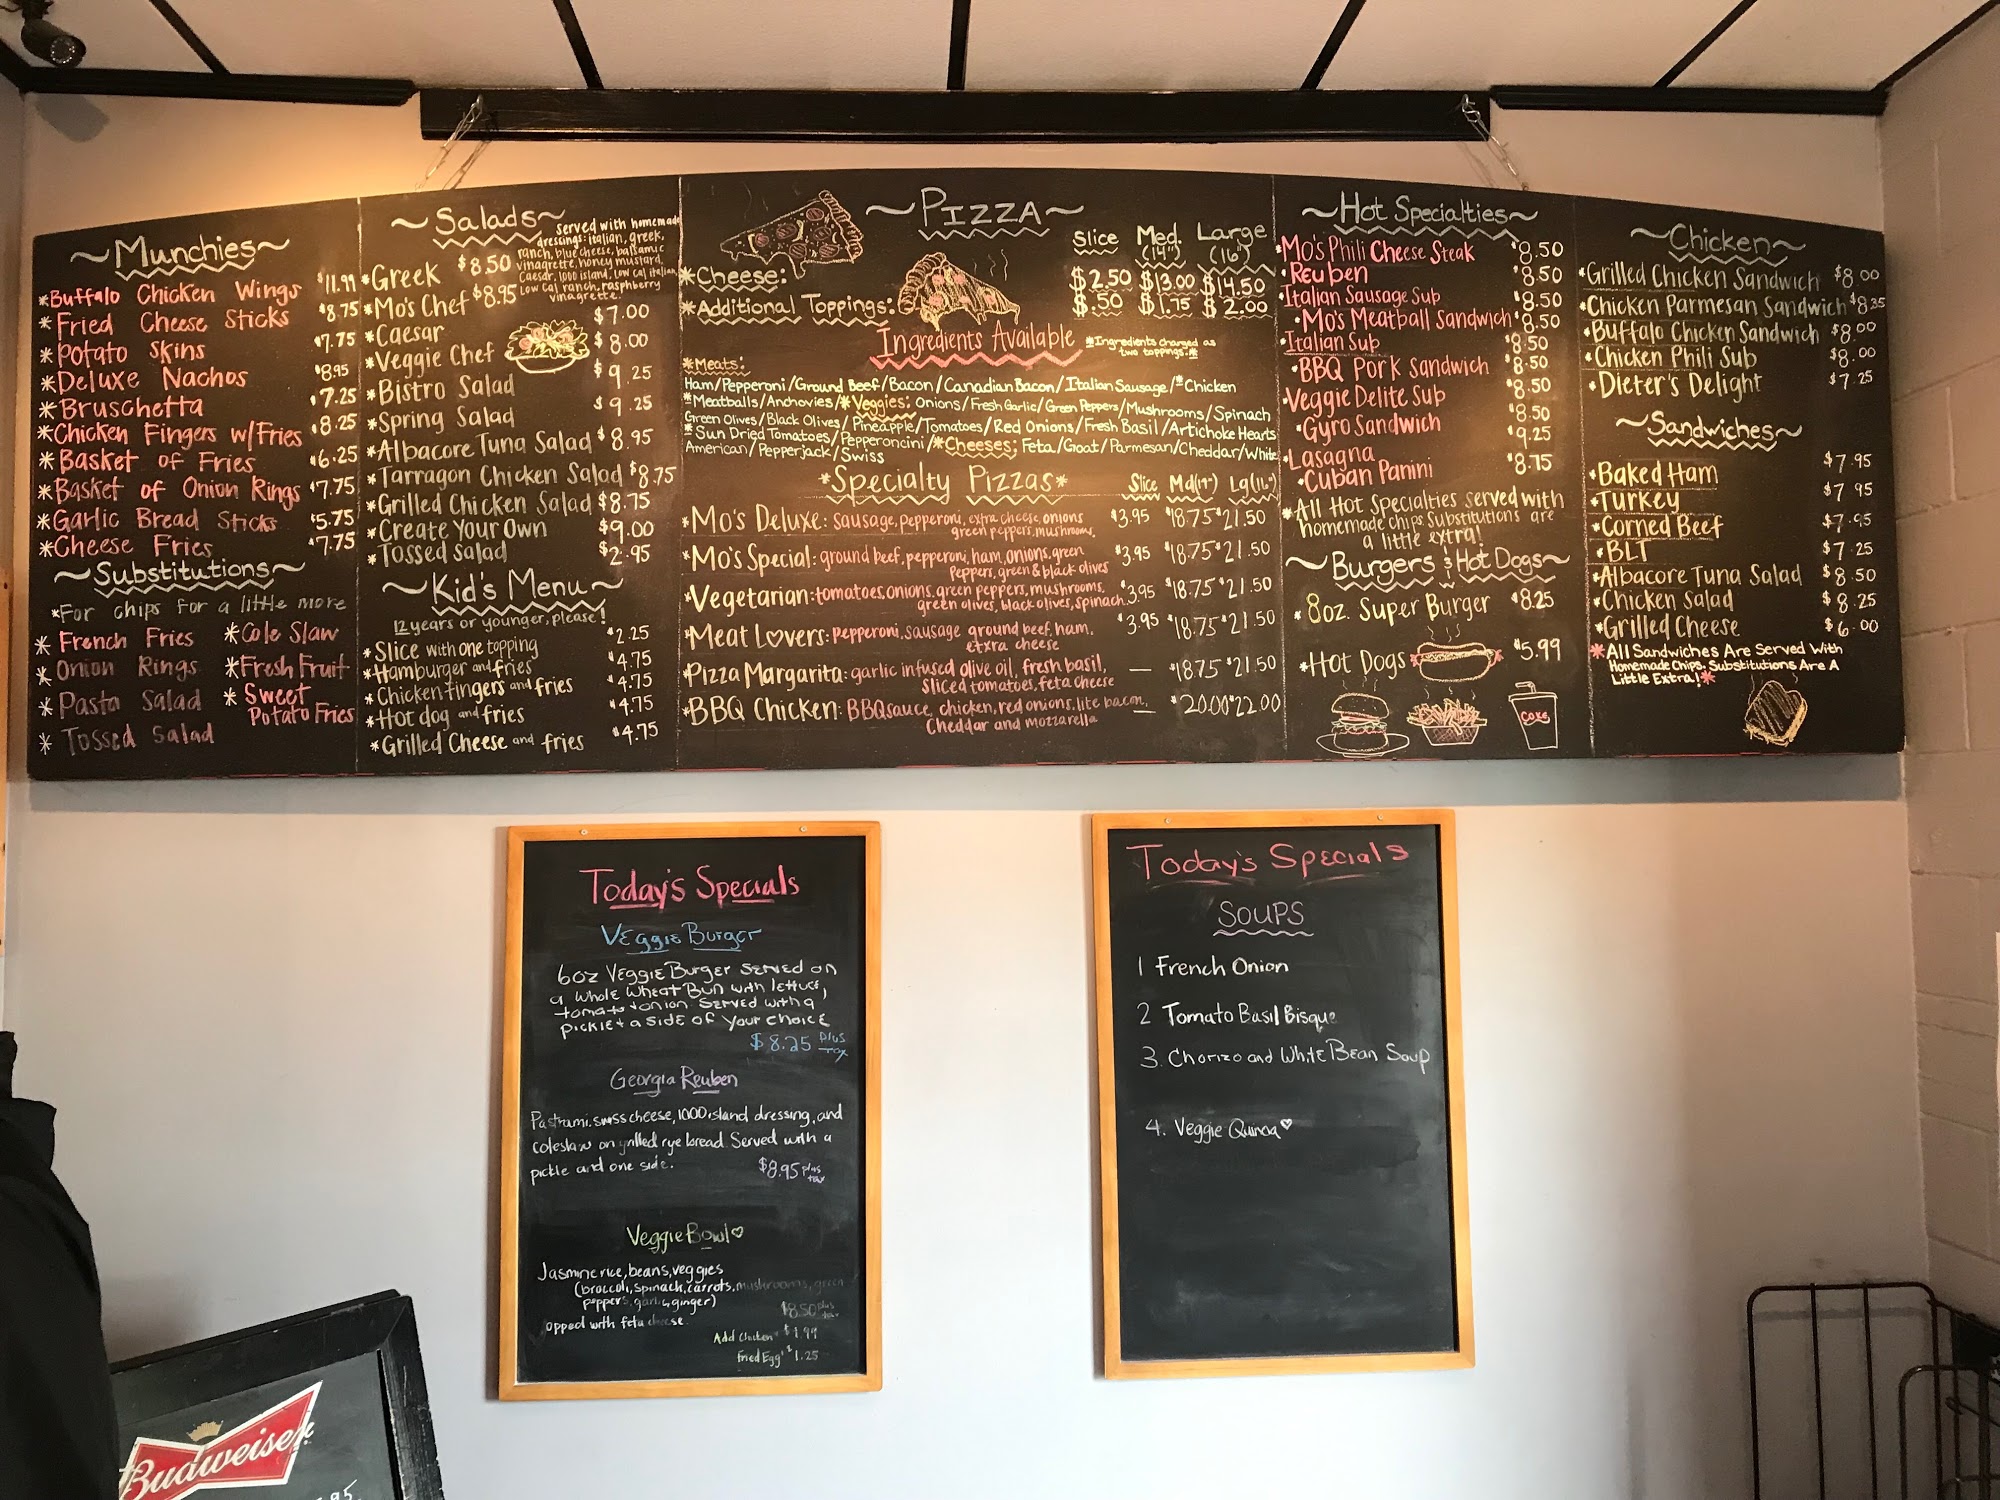 ~Munchies~
*Buffalo Chicken Wings $11.99
*Fried Cheese Sticks $8.75
*Potato Skins $7.75
*Deluxe Nachos $8.95
*Bruschetta $7.25
*Chicken Fingers w/Fries $8.25
*Basket of Fries $6.25
*Basket of Onion Rings $7.75
*Garlic Bread Sticks $5.75
*Cheese Fries $7.75
~Substitutions~
*For chips for a little more
* French Fries
* Onion Rings
* Pasta Salad
* Tossed Salad
*Cole Slaw
*Fresh Fruit
* Sweet
Potato Fries
~Salads~
served with homemade
dressings: italian, greek,
ranch, blue cheese, balsamic
vinagrette, honey mustard,
Caesar, 1000 island, Low cal italian
Low cal ranch, raspberry
vinagrette.
*Greek $8.50
*Mo's Chef $8.95
*Caesar $7.00
*Veggie Chef $8.00
*Bistro Salad $9.25
*Spring Salad $9.25
*Albacore Tuna Salad $8.95
*Tarragon Chicken Salad $8.75
*Grilled Chicken Salad $8.75
*Create Your Own $9.00
*Tossed Salad $2.95
~Kid's Menu~
12 years or younger, please!
*Slice with one topping $2.25
*Hamburger and fries $4.75
*Chicken fingers and fries $4.75
*Hot dog and fries $4.75
*Grilled Cheese and fries $4.75
~Pizza~
Slice Med. (14") Large (16")
*Cheese: $2.50 $13.00 $14.50
*Additional Toppings: $.50 $1.75 $2.00
Ingredients Available *Ingredients charged as
two toppings.*
*Meats:
Ham/Pepperoni/Ground Beef/Bacon/Canadian Bacon/Italian Sausage/*Chicken
*Meatballs/Anchovies/*Veggies: Onions/Fresh Garlic/Green Peppers/Mushrooms/Spinach
Green Olives/Black Olives/Pineapple/Tomatoes/Red Onions/Fresh Basil/Artichoke Hearts
*Sun Dried Tomatoes/Pepperoncini/*Cheeses: Feta/Goat/Parmesan/Cheddar/White
American/Pepperjack/Swiss
*Specialty Pizzas* Slice Md(14") Lg(16")
*Mo's Deluxe: sausage, pepperoni, extra cheese, onions $3.95 $18.75 $21.50
green peppers, mushrooms.
*Mo's Special: ground beef, pepperoni, ham, onions, green $3.95 $18.75 $21.50
peppers, green & black olives
*Vegetarian: tomatoes, onions, green peppers, mushrooms, $3.95 $18.75 $21.50
green olives, black olives, spinach
*Meat Lovers: pepperoni, sausage ground beef, ham, $3.95 $18.75 $21.50
etxra cheese
*Pizza Margarita: garlic infused olive oil, fresh basil, — $18.75 $21.50
sliced tomatoes, feta cheese
*BBQ Chicken: BBQ sauce, chicken, red onions, lite bacon, — $20.00 $22.00
Cheddar and mozzarella
~Hot Specialties~
*Mo's Phili Cheese Steak $8.50
*Reuben $8.50
*Italian Sausage Sub $8.50
*Mo's Meatball Sandwich $8.50
*Italian Sub $8.50
*BBQ Pork Sandwich $8.50
*Veggie Delite Sub $8.50
*Gyro Sandwich $8.50
*Lasagna $9.25
*Cuban Panini $8.75
*All Hot Specialties served with
homemade chips. Substitutions are
a little extra!
~Burgers & Hot Dogs~
*8oz. Super Burger $8.25
*Hot Dogs $5.99
Coke
~Chicken~
*Grilled Chicken Sandwich $8.00
*Chicken Parmesan Sandwich $8.35
*Buffalo Chicken Sandwich $8.00
*Chicken Phili Sub $8.00
*Dieter's Delight $7.25
~Sandwiches~
*Baked Ham $7.95
*Turkey $7.95
*Corned Beef $7.95
*BLT $7.25
*Albacore Tuna Salad $8.50
*Chicken Salad $8.25
*Grilled Cheese $6.00
*All Sandwiches Are Served With
Homemade Chips, Substitutions Are A
Little Extra!*
Today's Specials
Veggie Burger
6oz Veggie Burger Served on
a whole wheat Bun with lettuce,
tomato + onion Served with a
pickle + a side of your choice
$8.25 plus
tax
Georgia Reuben
Pastrami, swiss cheese, 1000 island dressing, and
coleslaw on grilled rye bread Served with a
pickle and one side.
$8.95 plus
tax
Veggie Bowl♡
Jasmine rice, beans, veggies
(broccoli, spinach, carrots, mushrooms, green
peppers, garlic, ginger)
opped with feta cheese.
$8.50 plus
tax
Add Chicken $1.99
Fried Egg $1.25
Today's Specials
SOUPS
1 French Onion
2 Tomato Basil Bisque
3. Chorizo and White Bean Soup
4. Veggie Quinoa♡
Budweiser
.95